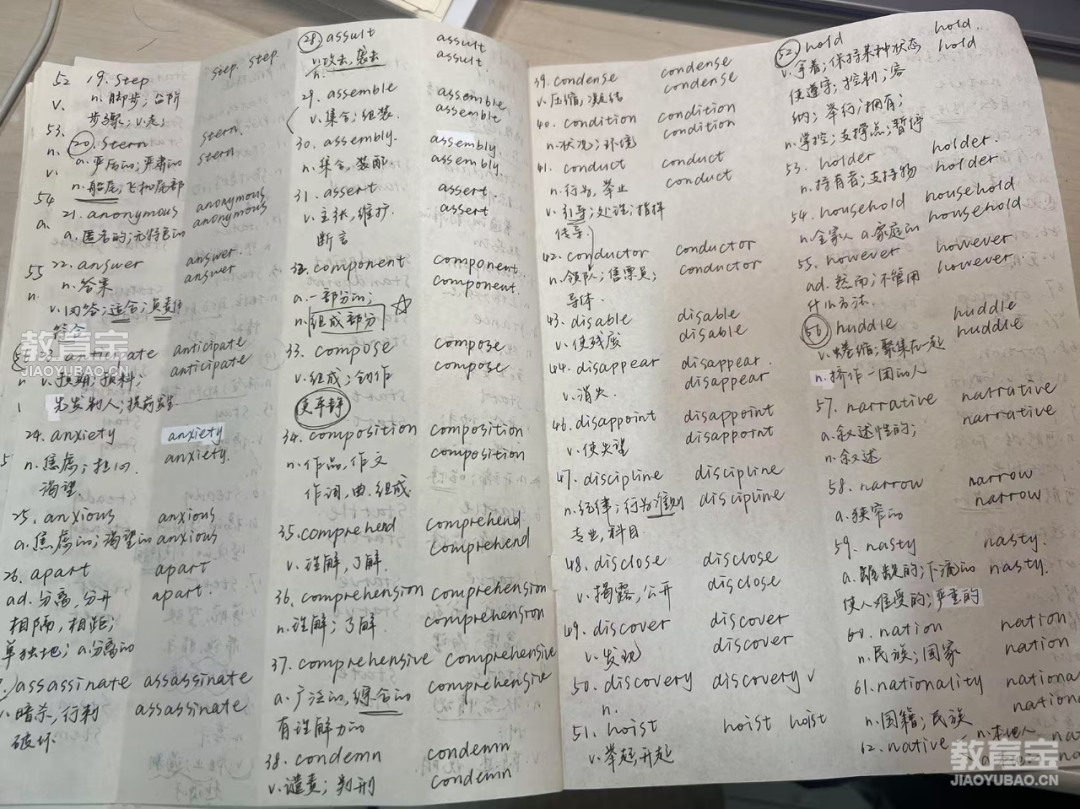 52
19. step
step step
n. 脚步；台阶
步骤；v. 走；
53.
20. stern
stern.
stern
a. 严厉的；严肃的
n. 船尾；飞机尾部
54
21. anonymous
anonymous.
anonymous
a. 匿名的；无特色的
55
22. answer
answer
answer
n. 答案
v. 回答；适合；负责任
符合
23. anticipate
anticipate
anticipate
v. 预期；预料；
先发制人；提前发生
24. anxiety
anxiety
anxiety.
n. 焦虑；担心.
渴望.
25. anxious
anxious
anxious
a. 焦虑的；渴望的
26. apart
apart
apart.
ad. 分离，分开
相隔，相距；
单独地；a. 分离的
assassinate
assassinate
assassinate
v. 暗杀，行刺
破坏
28. assult
assult
assult
v. 攻击，袭击
n.
29. assemble
assemble.
assemble
v. 集合；组装.
30. assembly.
assembly.
assembly.
n. 集合，装配
31. assert
assert.
assert
v. 主张，维护.
断言
32. component
component.
component.
a. 一部分的；
n. 组成部分
33. compose
compose.
compose
v. 组成；创作
使平静
34. composition
composition
composition
n. 作品，作文
作词，曲，组成.
35. comprehend
comprehend
comprehend
v. 理解，了解.
36. comprehension
comprehension
comprehension
n. 理解；了解.
37. comprehensive
comprehensive
comprehensive
a. 广泛的，综合的
有理解力的
38. condemn
condemn
condemn
v. 谴责；判刑
39. condense
condense
condense
v. 压缩，凝结
40. condition
condition
condition
n. 状况；环境
41. conduct
conduct
conduct
n. 行为，举止
v. 引导；处理；指挥
传导.
42. conductor
conductor
conductor
n. 领队；售票员；
导体.
43. disable
disable
disable
v. 使残废
44. disappear
disappear.
disappear.
v. 消失.
46. disappoint
disappoint
disappoint
v. 使失望
47. discipline
discipline
discipline
n. 纪律；行为准则
专业，科目.
48. disclose
disclose
disclose
v. 揭露，公开
49. discover
discover
discover
v. 发现
50. discovery
discovery v
n.
51. hoist
hoist hoist
v. 举起，升起
52. hold
hold.
hold
v. 拿着；保持某种状态
使遵守；控制；容
纳；举行；拥有；
n. 掌控；支撑点；暂停
53. holder
holder.
holder
n. 持有者；支持物
54. household
household
household
n. 全家人 a. 家庭的
55. however
however
however
ad. 然而；不管用
什么方法.
56. huddle
huddle
huddle
v. 蜷缩；聚集在一起
n. 挤作一团的人
57. narrative
narrative
narrative
a. 叙述性的；
n. 叙述
58. narrow
narrow
narrow
a. 狭窄的
59. nasty
nasty.
nasty.
a. 下流的
使人难受的；严重的
60. nation
nation
nation
n. 民族；国家
61. nationality
n. 国籍；民族
62. native
教育宝
JIAOYUBAO.CN
教育宝
JIAOYUBAO.CN